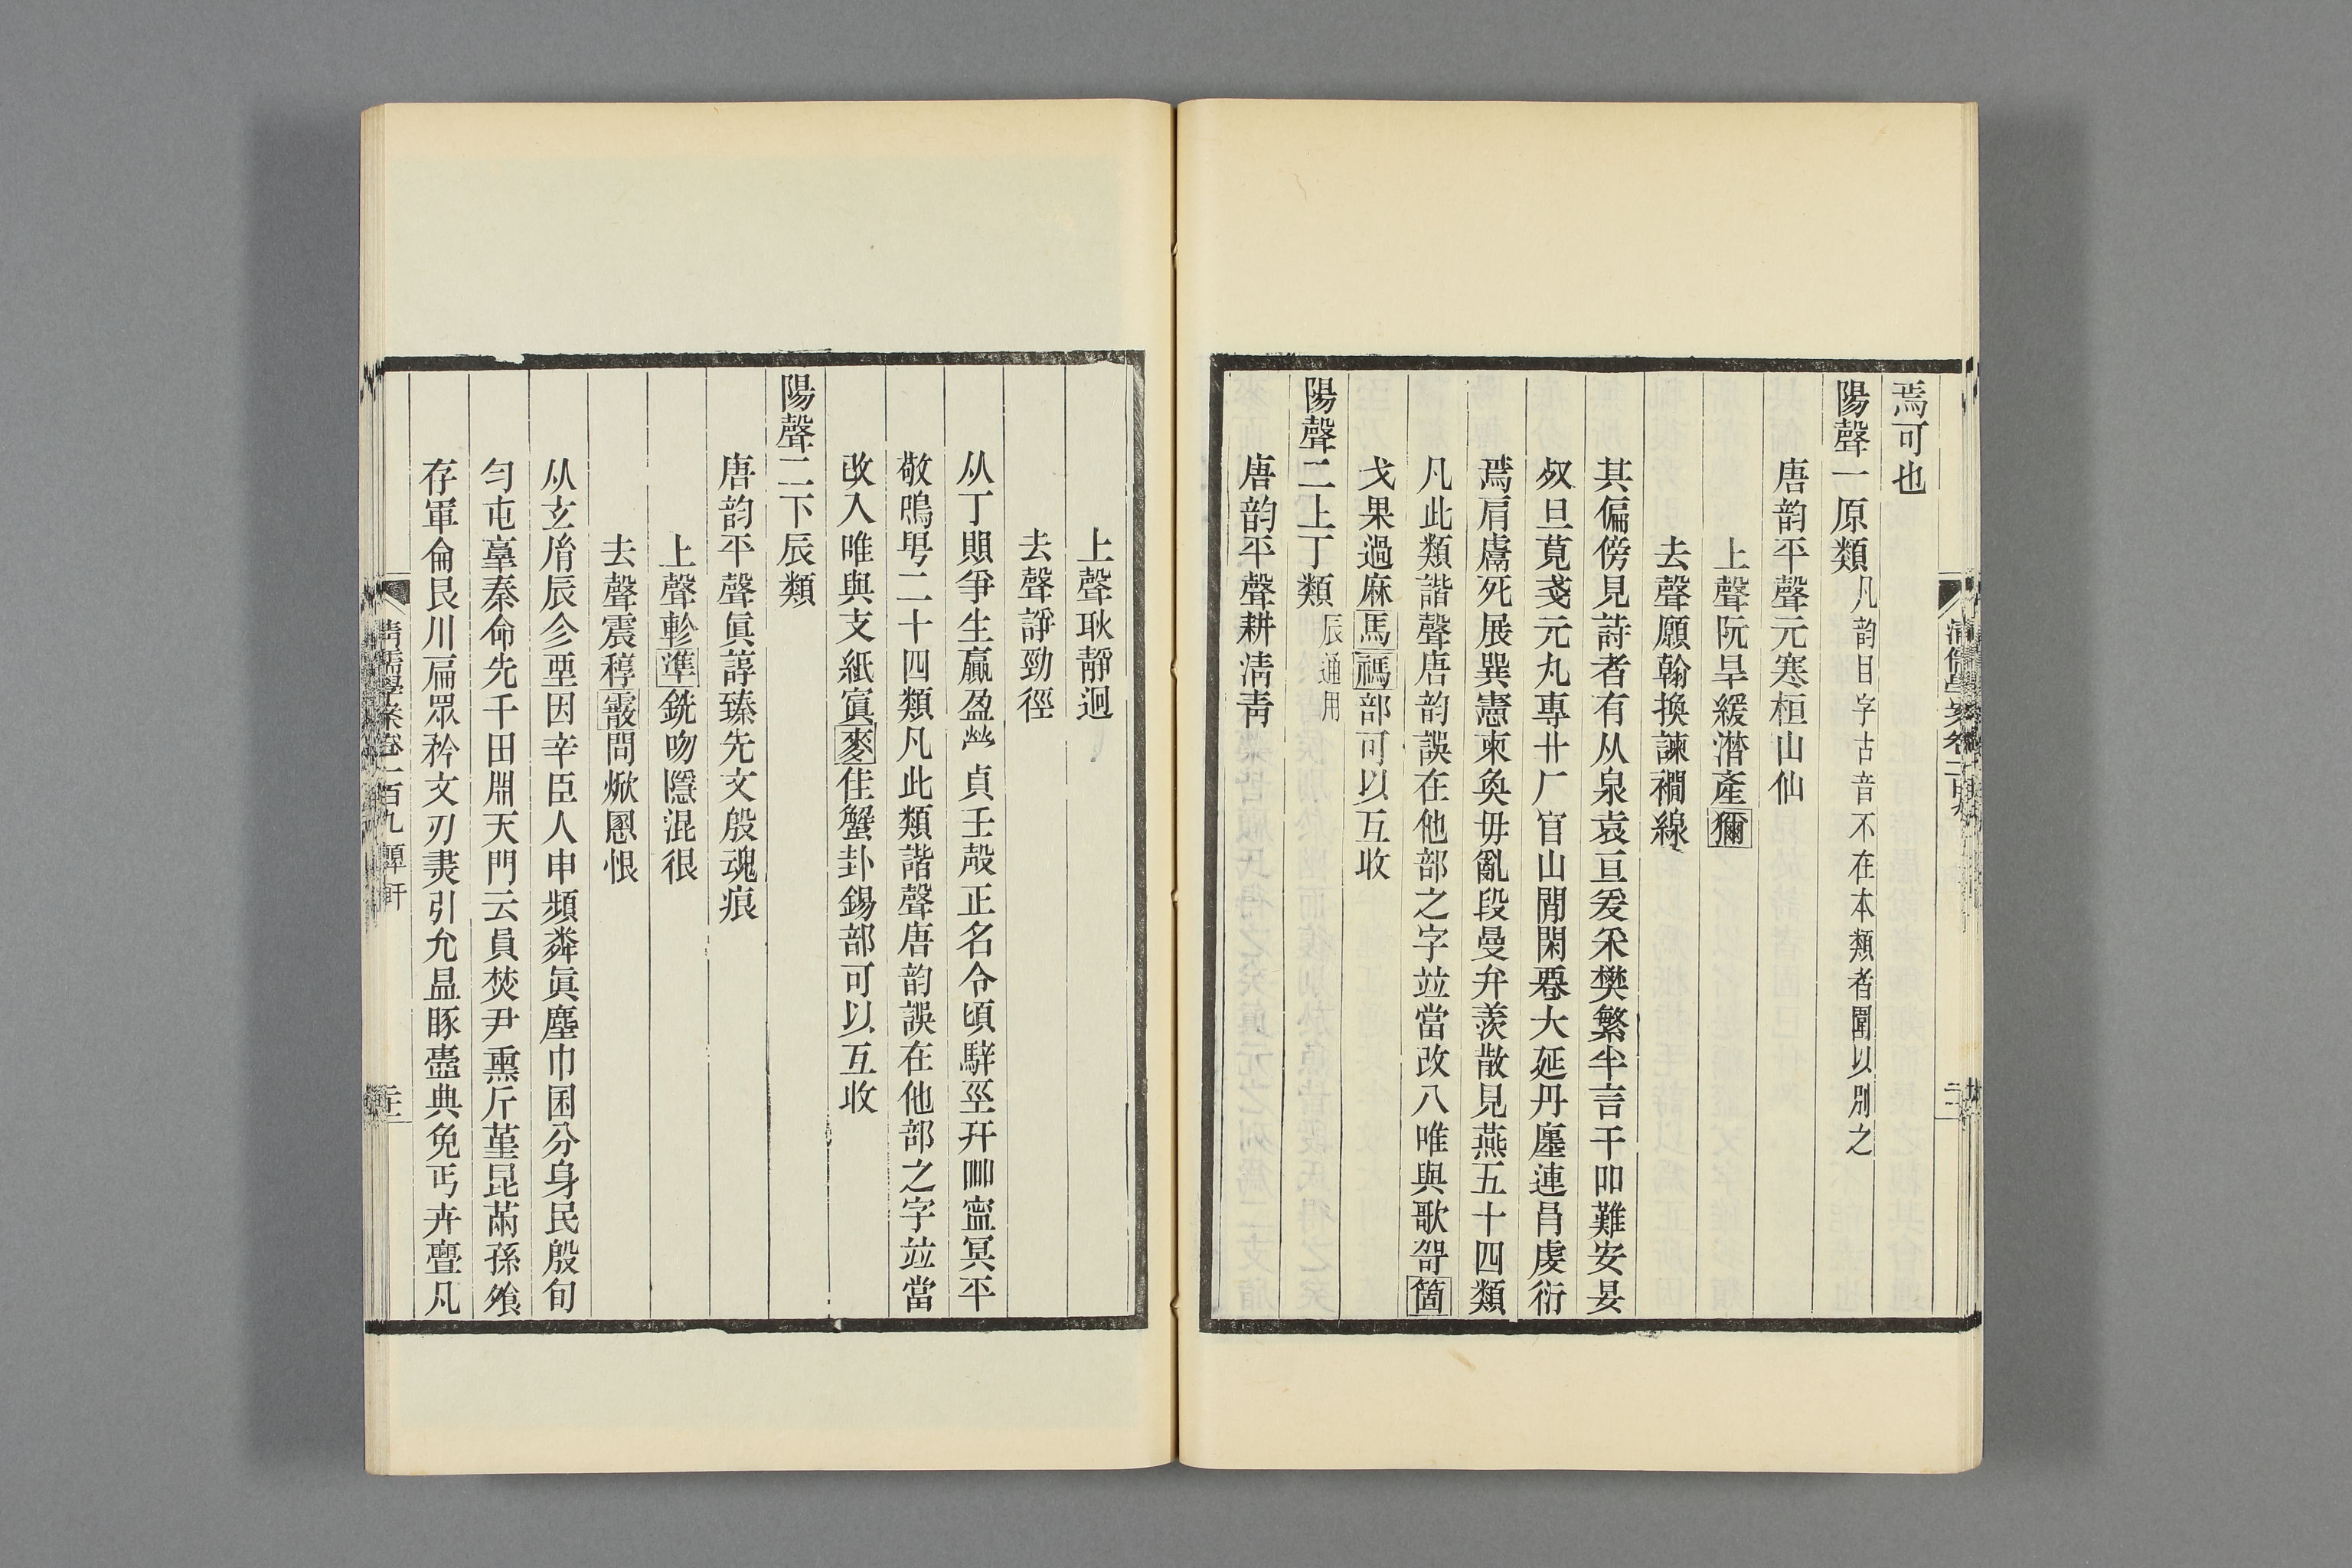 焉可也
陽聲一原類凡韵目字古音不在本類者圍以別之
唐韵平聲元寒桓山仙
上聲阮旱緩潸產獮
去聲願翰換諫襇線
其偏傍見詩者有从泉袁亘爰釆樊繁半言干吅難安晏
奴旦萈戔元丸專廾厂官山閒閑䙴大延丹廛連肙虔衍
焉肩鬳死展巽憲柬奐毌亂段曼弁羨散見燕五十四類
凡此類諧聲唐韵誤在他部之字竝當改入唯與歌哿箇
戈果過麻馬禡部可以互收
陽聲二上丁類辰通用
唐韵平聲耕清青
上聲耿靜迥
去聲諍勁徑
从丁䀏爭生贏盈熒貞壬殸正名令頃騂巠幵冊寍冥平
敬鳴甹二十四類凡此類諧聲唐韵誤在他部之字竝當
改入唯與支紙寘麥佳蟹卦錫部可以互收
陽聲二下辰類
唐韵平聲眞諄臻先文殷魂痕
上聲軫準銑吻隱混很
去聲震稕霰問焮慁恨
从玄胤辰㐱垔因辛臣人申頻粦眞塵巾囷分身民殷旬
勻屯𦎫秦命先千田淵天門云員焚尹熏斤堇昆㒼孫飧
存軍侖艮川扁眾矜文刃㶳引允昷豚壼典免丏卉亹凡
清儒學案卷一百九 顨軒